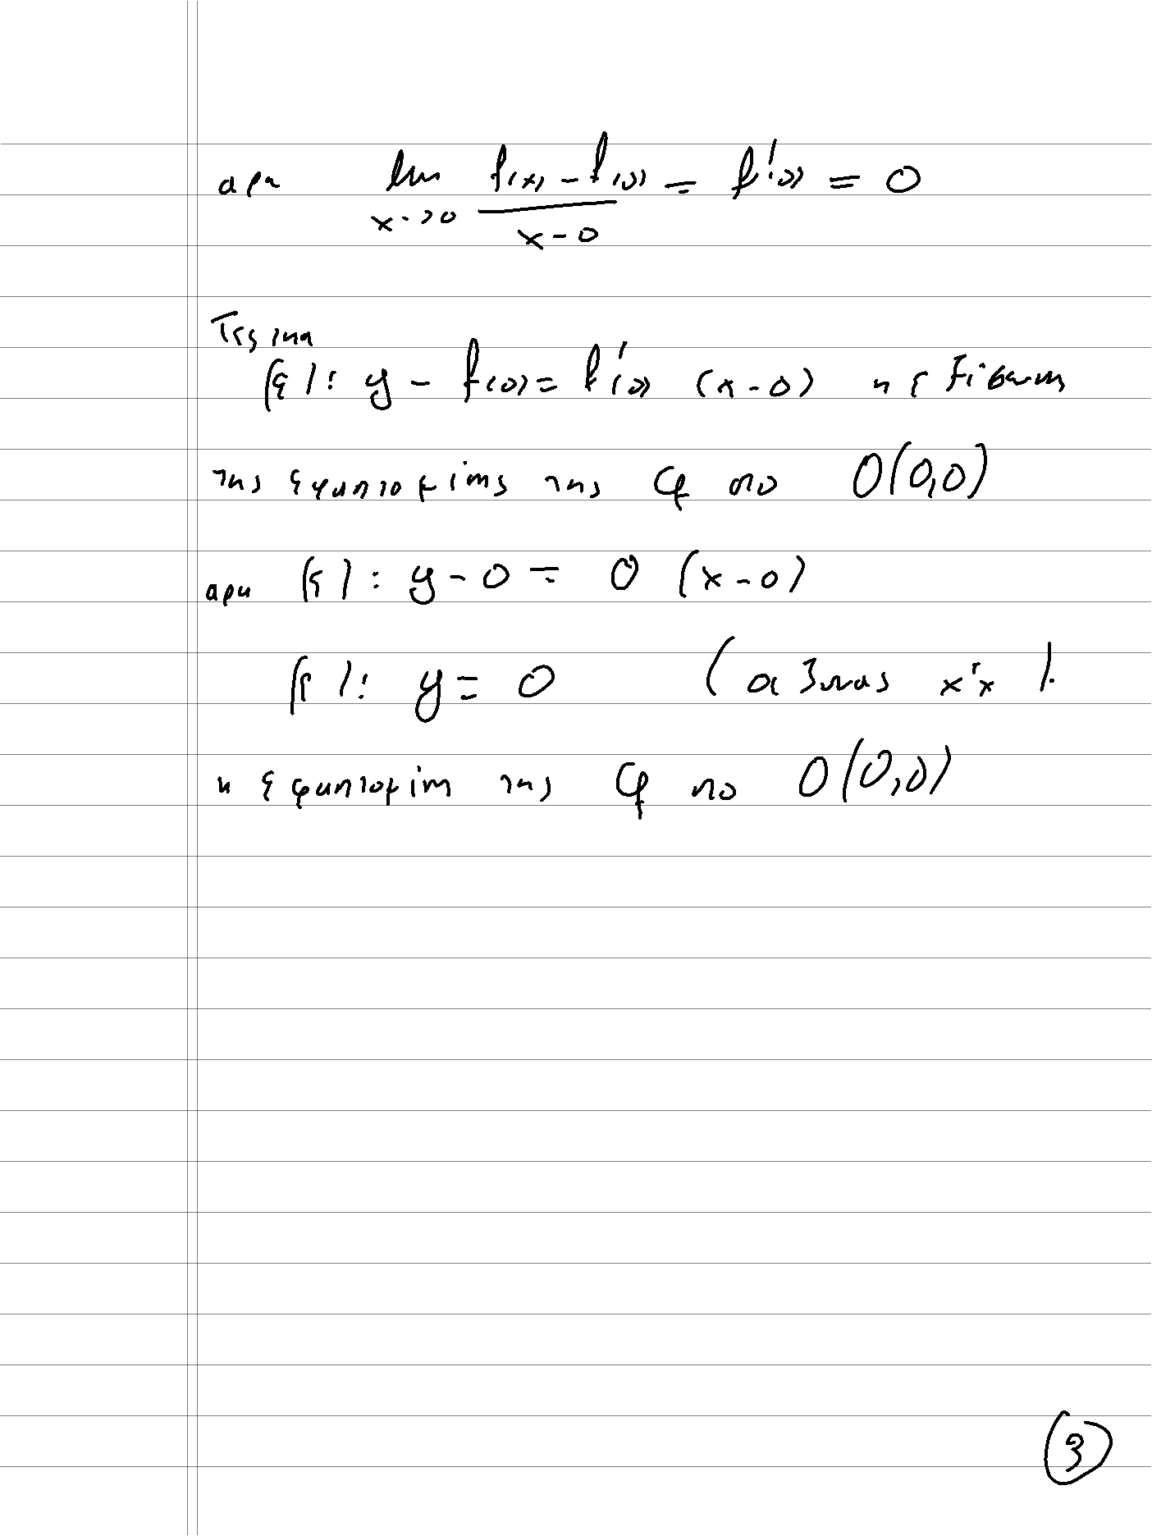 αρα lim f(x) - f(0) = f'(0) = 0
x->0 x-0
(ε): y - f(0) = f'(0) (x-0) η εξίσωση
της εφαπτομένης της Cf στο O(0,0)
αρα (ε): y - 0 = 0 (x-0)
(ε): y = 0 (αξονας x'x).
η εφαπτομένη της Cf στο O(0,0)
3